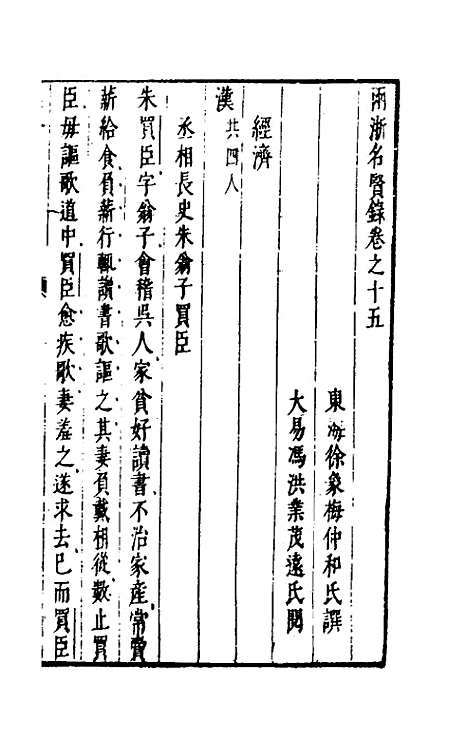 兩浙名賢錄卷之十五
東海徐象梅仲和氏譔
大易馮洪業茂遠氏閱
經濟
漢共四人
丞相長史朱翁子買臣
朱買臣字翁子會稽吳人家貧好讀書不治家產常賣
薪給食負薪行輒讀書歌謳之其妻負戴相從數止買
臣毋謳歌道中買臣愈疾歌妻羞之遂求去已而買臣